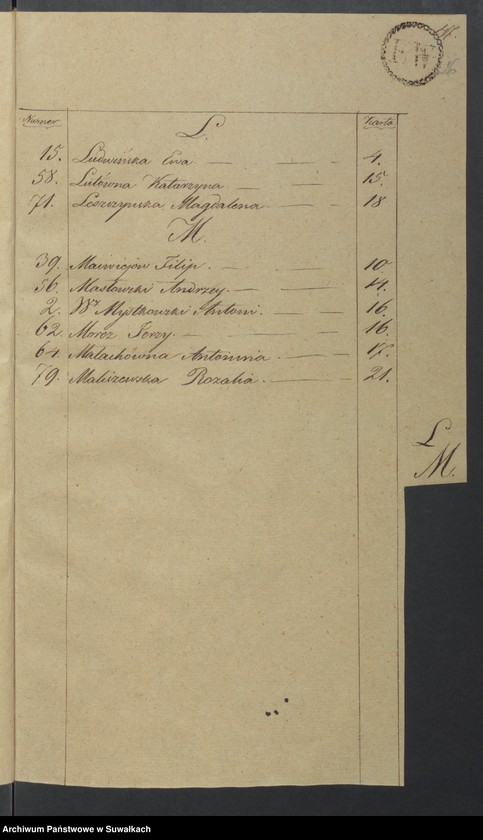 Numer
Karta
L.
15. Ludwińska Ewa 4.
58. Lutówna Katarzyna 15.
71. Leszczyńska Magdalena 18
M.
39. Filip 10
56. Masłowski Andrzej 14.
2. Wy Mystkowski Antoni 16.
62. Moroz Jerzy 16.
64. Małachówna Antonina 17.
79. Maliszewska Rozalia 21.
L
M.
Archiwum Państwowe w Suwałkach